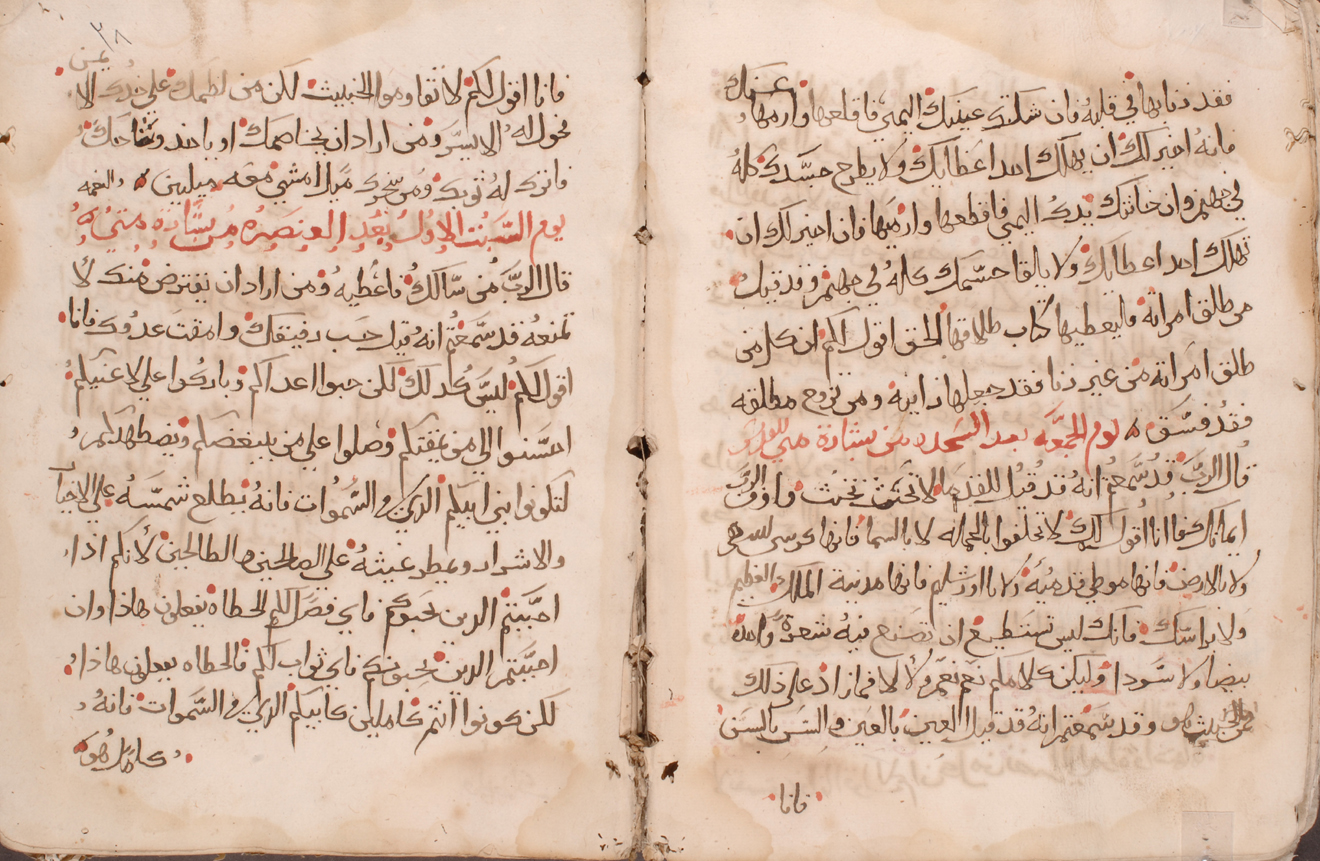 فقد زنا بها في قلبه فان شككتك عينك اليمنى فاقلعها وارمها عنك
فانه اخير لك ان يهلك احد اعضايك ولا يطرح جسدك كله
في جهنم وان خانتك يدك اليمني فاقطعها وارميها فان اخير لك ان
تهلك احد اعضايك ولا يالقا جسمك كله في جهنم وقد قيل
من طلق امراته فليعطيها كتاب طلاقها الحق اقول لكم ان كل من
طلق امراته من غير زنا فقد جعلها زانيه ومن تزوج مطلقه
فقد فسق
يوم الجمعه بعد السجده من بشارة متى
قال الرب قد سمعتم انه قد قيل للقدما لا تحنث
ايمانك فانا اقول لك لا تحلفوا بالجماله لا بالسما فانها كرسي
ولا بالارض فانها موطي قدميه ولا باورشليم فانها مدينة الملك العظيم
ولا براسك فانك ليس تستطيع ان تصنع فيه شعرة واحدة
بيضا ولا سودا وليكن كلامكم نعم نعم ولا لا فما زاد على ذلك
وقد سمعتم انه قد قيل العين بالعين والسن بالسن
فانا
٢٨
يمين
فانا اقول لكم لا تقاوموا الخبيث لكن من لطمك على خدك الا
فحول له الايسر ومن اراد ان يخاصمك او ياخد
فاترك له ثوبك ومن سخرك ميلا امشي معه ميلين
يوم السبت الاول بعد العنصره من بشاره متى
قال الرب من سالك فاعطيه ومن اراد ان يقترض منك لا
تمنعه قد سمعتم انه قيل حب رفيقك وامقت عدوك فانا
اقول لكم ليس كدلك لكن حبوا اعداكم وباركوا على لاعنيكم
احسنوا الي من يمقتكم وصلوا على من يبغضكم ويضطهدكم
لتكونوا بني ابيكم الدي في السموات فانه يطلع شمسه على الاخيار
والاشرار ويمطر غيثه على الصالحين والطالحين لانكم ادا
احببتم الدين يحبوكم فاي فضل لكم الخطاه يفعلون هادا وان
احببتم الدين يحبونكم فاي ثواب لكم فالخطاه يفعلون هادا
لكن كونوا انتم كاملين كابيكم الدي في السموات فانه
كاملا هو